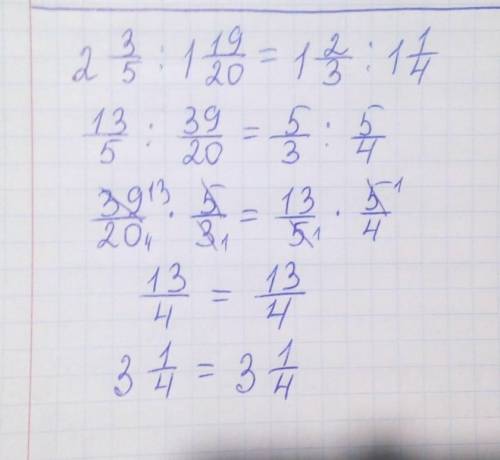 2 3/5 : 1 19/20 = 1 2/3 : 1 1/4
13/5 : 39/20 = 5/3 : 5/4
39 13/20 4 · 5/3 1 = 13/5 1 · 5 1/4
13/4 = 13/4
3 1/4 = 3 1/4